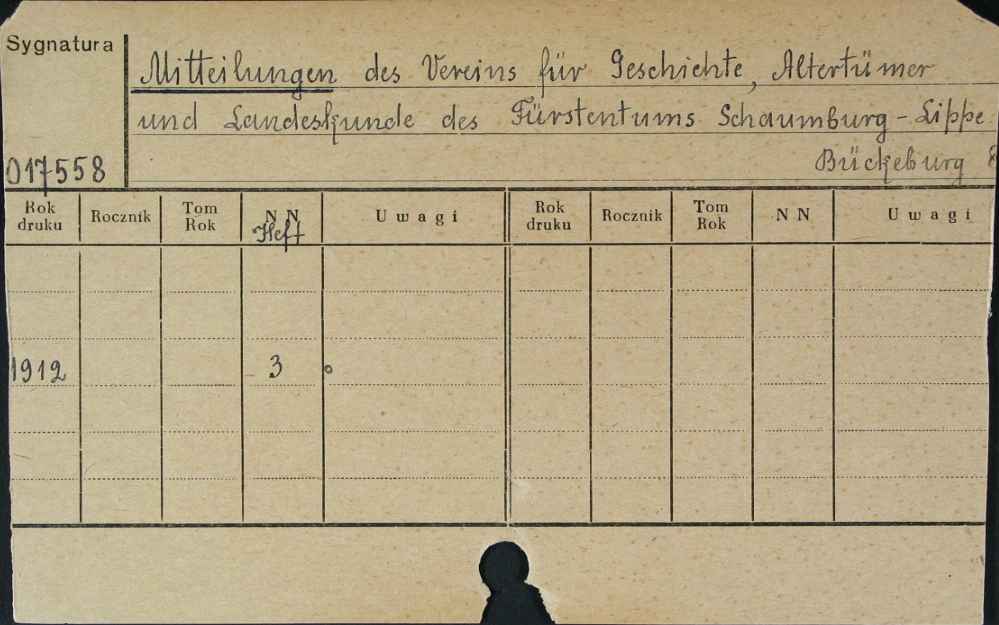 Sygnatura
Mitteilungen des Vereins für Geschichte, Altertümer
und Landeskunde des Fürstentums Schaumburg-Lippe.
Bückeburg
017558
Rok druku Rocznik Tom Rok NN Heft Uwagi Rok druku Rocznik Tom Rok NN Uwagi
1912 3